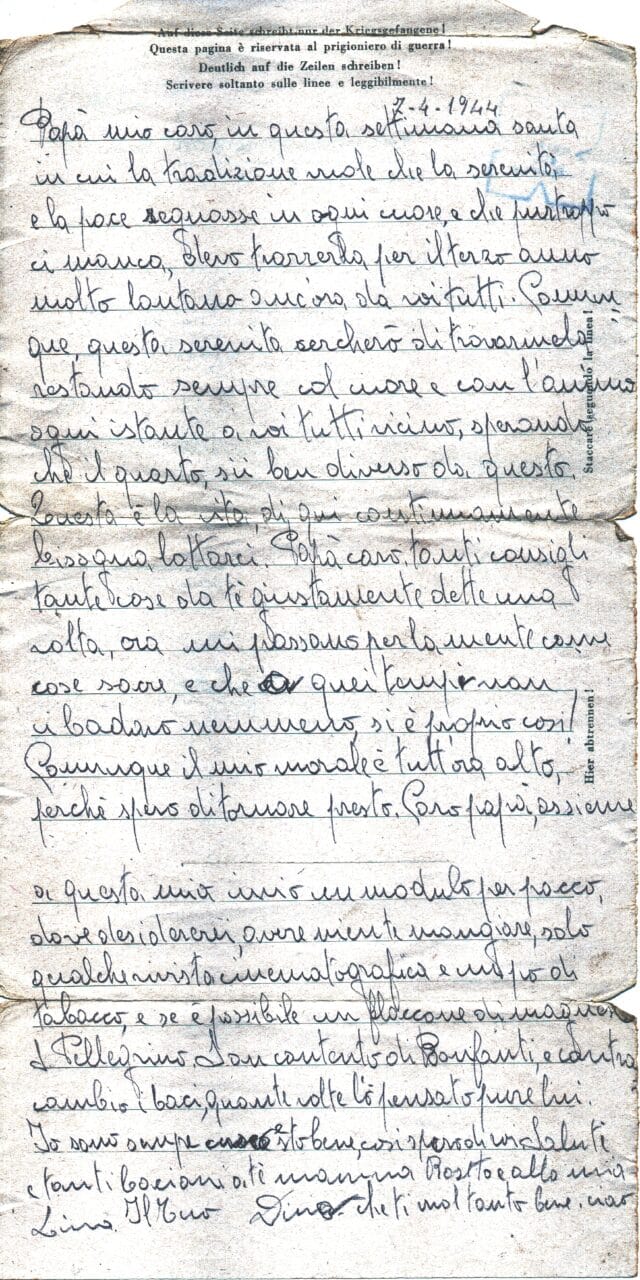 Auf diese Seite schreibt nur der Kriegsgefangene!
Questa pagina è riservata al prigioniero di guerra!
Deutlich auf die Zeilen schreiben!
Scrivere soltanto sulle linee e leggibilmente!
7-4-1944
Papà mio caro, in questa settimana santa
in cui la tradizione vuole che la serenità,
e la pace regnasse in ogni cuore, e che purtroppo
ci manca, devo trascorrerla per il terzo anno
molto lontano ancora da voi tutti. Comun
que, questa serenità cercherò di trovarmela
restando sempre col cuore e con l'animo
ogni istante a voi tutti vicino, sperando
che il quarto, sii ben diverso da questo.
Questa è la vita, di qui continuamente
bisogna lottarci. Papà caro, tanti consigli
tante cose da te giustamente dette una
volta, ora mi passano per la mente come
cose sacre, e che a quei tempi non
ci badavo nemmeno, si è proprio così!
Comunque il mio morale è tutt'ora alto,
perchè spero di tornare presto. Caro papà, assieme
a questa mia invio un modulo per pacco,
dove desidererei, avere niente mangiare, solo
qualche rivista cinematografica e un po di
tabacco, e se è possibile un flaccone di magnesia
S. Pellegrino. Son contento di Bonfanti, e contra
cambio i baci, quante volte l'ò pensato pure lui.
Io sono sempre sto bene, così spero di voi. Saluti
e tanti bacioni a te mamma e alla mia
Lina. Il tuo Dino che ti vuol tanto bene. ciao
Staccare seguendo la linea!
Hier abtrennen!